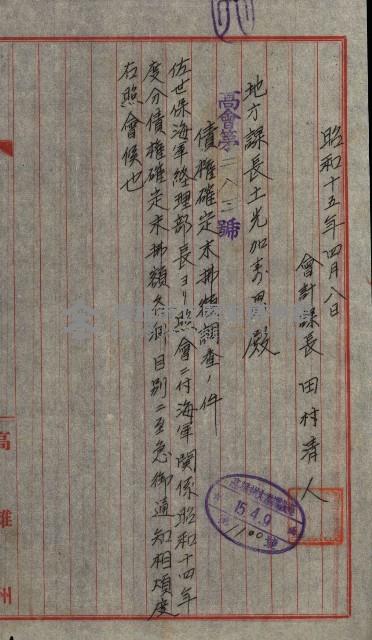 昭和十五年四月八日
會計課長 田村清人
地方課長土光加壽男殿
高會第二八三號
債權確定未拂額調査ノ件
佐世保海軍經理部長ヨリ照會ニ付海軍關係昭和十四年
度分債權確定未拂額各科目別ニ至急御通知相煩度
右照會候也
15.4.9
高雄州